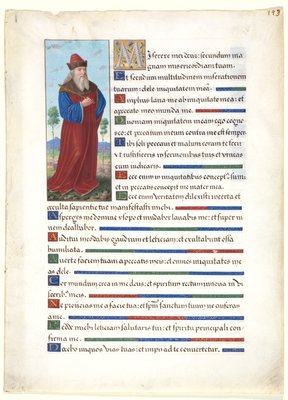 193
Miserere mei deus: secundum ma
gnam misericordiam tuam.
Et secundum multitudinem miserationum
tuarum: dele iniquitatem meã.
Amplius lava me ab iniquitate mea: et
a peccato meo munda me.
Quoniam iniquitatem meam ego cogno-
sco: et peccatum meum contra me est semper.
Tibi soli peccavi et malum coram te feci:
vt iustificeris in sermonibus tuis et vincas
cum iudicaris.
Ecce enim in iniquitatibus conceptꝰ sum:
et in peccatis concepit me mater mea.
Ecce enim veritatem dilexisti: incerta et
occulta sapientie tue manifestasti michi.
Asperges me domine ysopo et mundabor: lavabis me: et super ni
vem dealbabor.
Auditui meo dabis gaudium et leticiam: et exultabunt ossa
humiliata.
Averte faciem tuam a peccatis meis: et omnes iniquitates me
as dele.
Cor mundum crea in me deus: et spiritum rectum innova in vi
sceribꝰ meis.
Ne proicias me a facie tua: et spm̃ sanctum tuum ne auferas
a me.
Redde michi leticiam salutaris tui: et spiritu principali con
firma me.
Docebo iniquos vias tuas: et impii ad te convertetur.